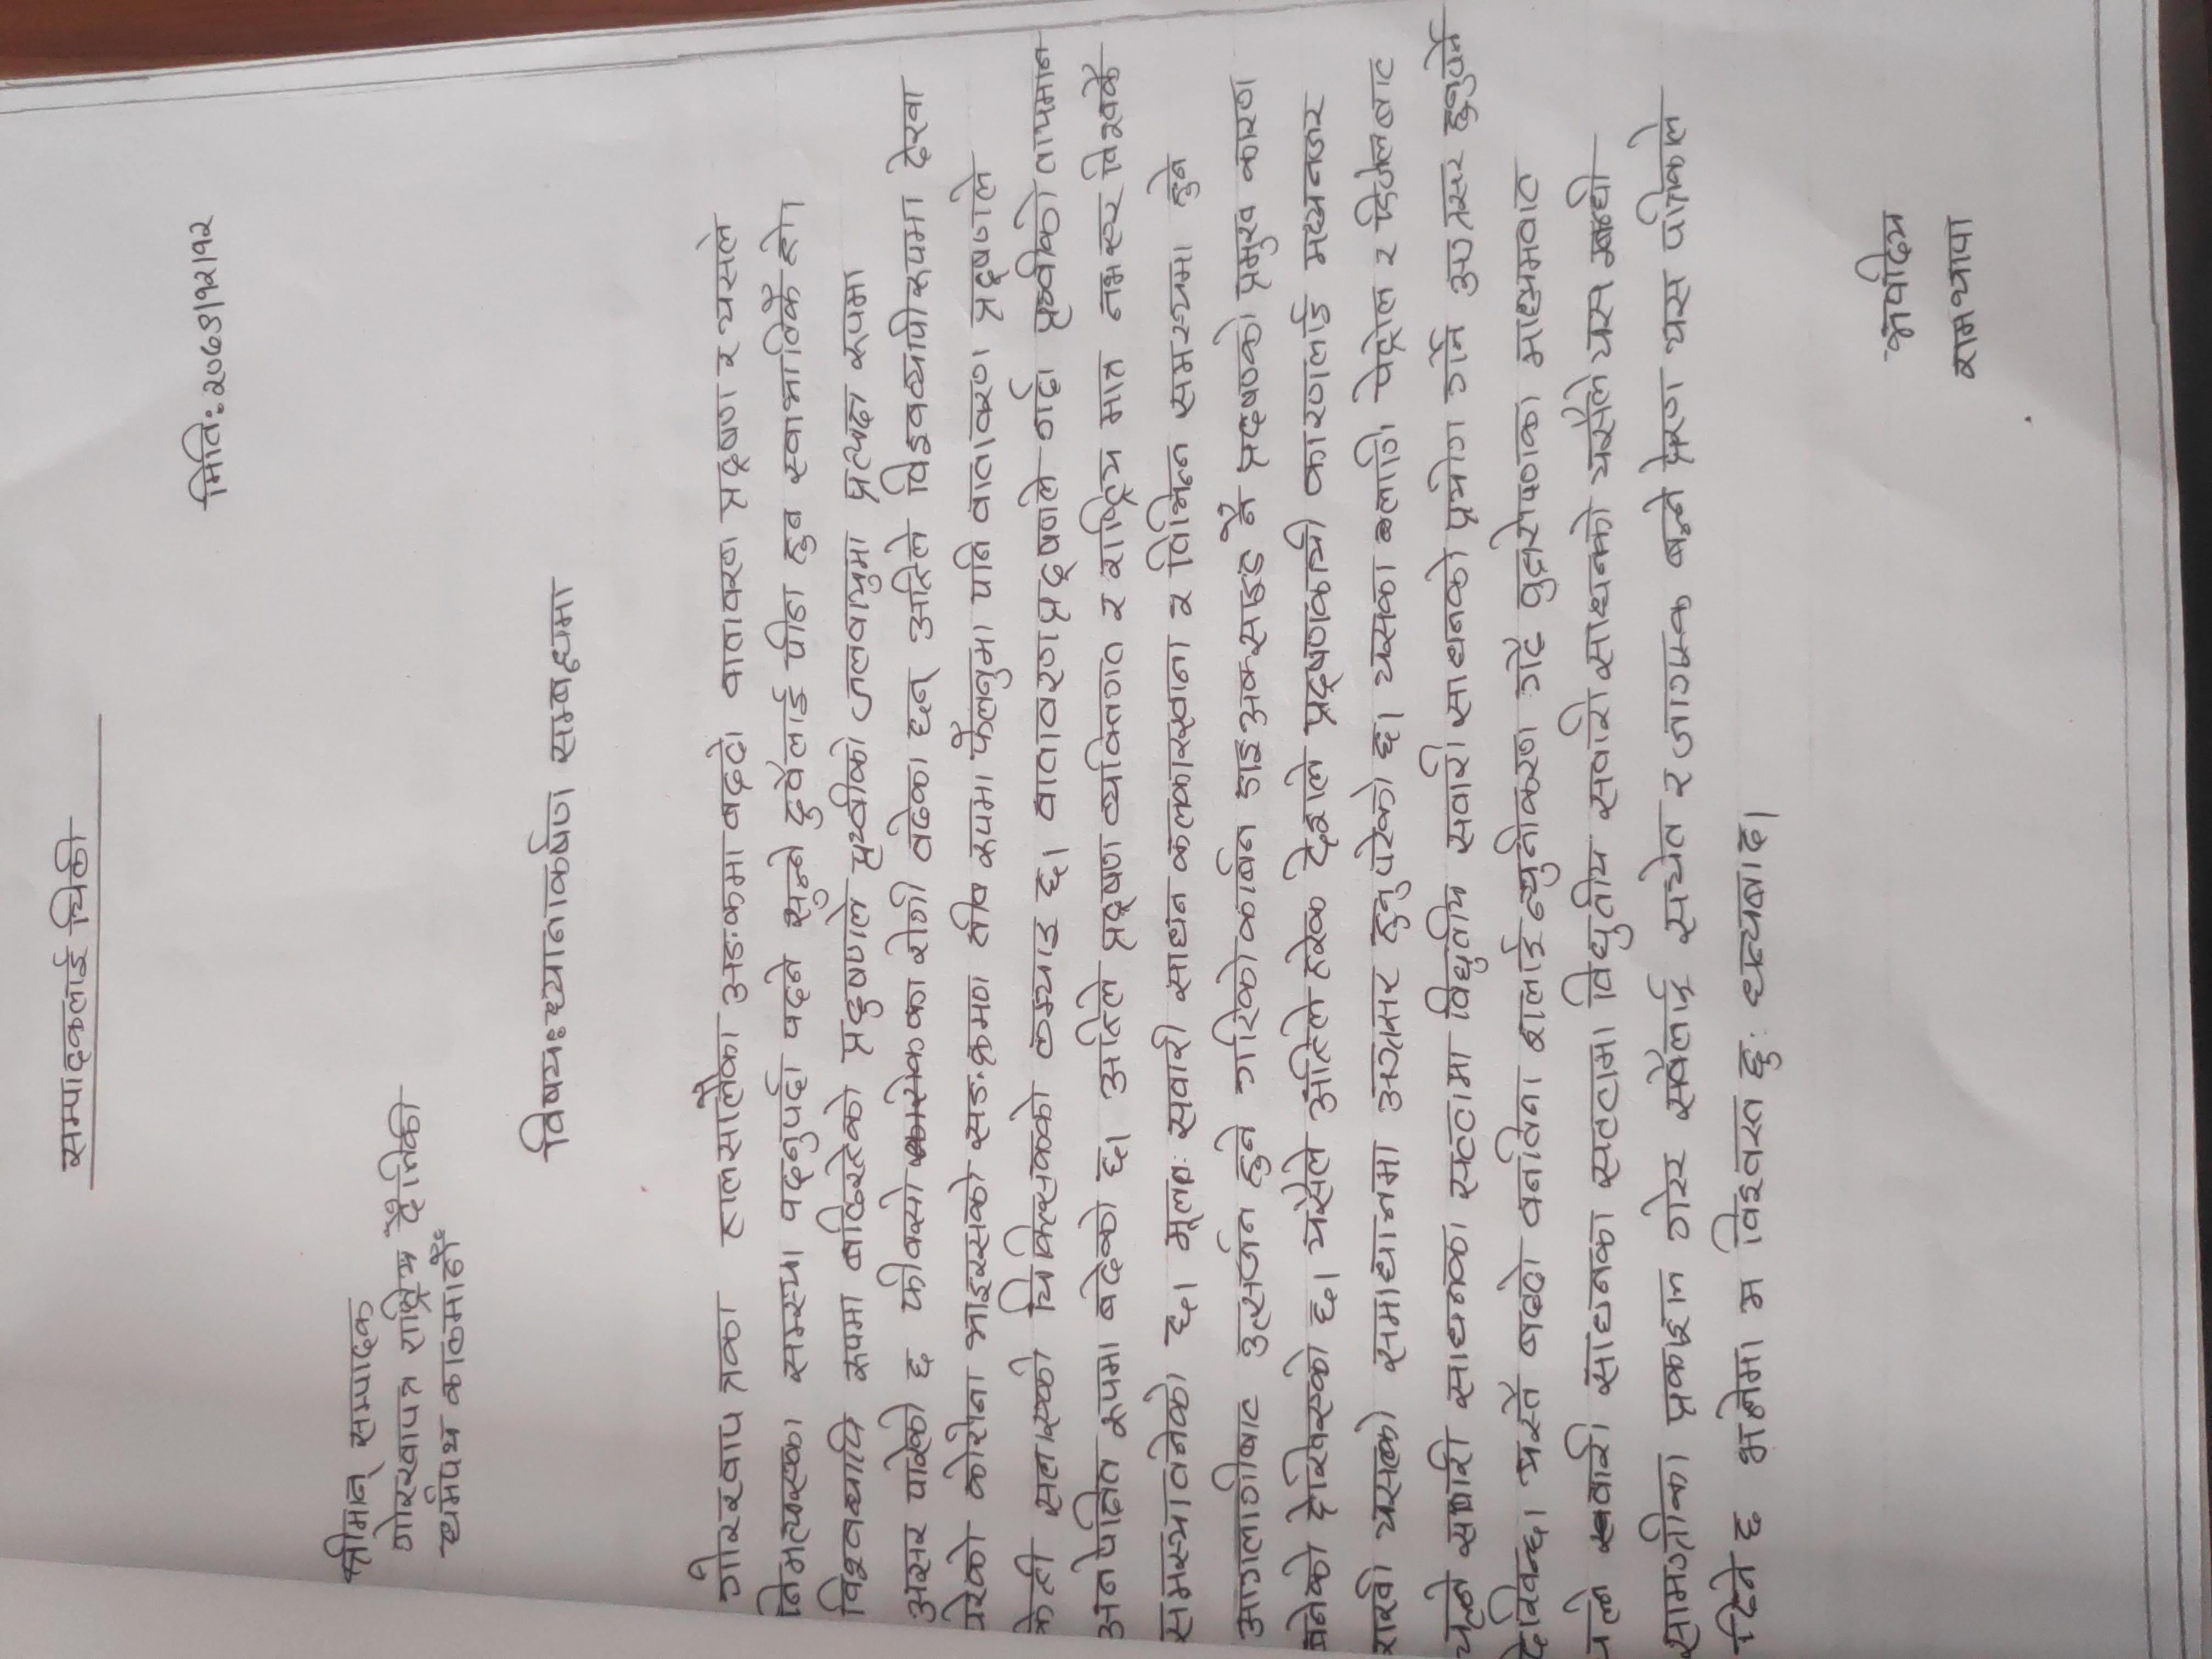 सम्पादकलाई चिठी
मिति: २०७९/१२/१२
श्रीमान् सम्पादक
गोरखापत्र राष्ट्रिय दैनिकी
धर्मपथ काठमाडौँ
विषय: ध्यानाकर्षण सम्बन्धमा
गोरखापत्रका हालसालैका अङ्कमा बढ्दो वातावरण प्रदूषण र यसले
निम्त्याएका समस्या पढ्नुपर्दा पढ्ने सुन्ने दुवैलाई पीडा हुन स्वाभाविकै हो।
विश्वव्यापि रूपमा बढिरहेको प्रदुषणले पृथ्वीको जलवायुमा प्रत्यक्ष रूपमा
असर पारेको छ फोक्सो का रोगी वढेका छन् अहिले विश्वव्यापी रूपमा देखा
परेको कोरोना भाइरसको सङक्रमण तीव्र रूपमा फैलनुमा पनि वातावरण प्रदूषणले
चिकित्सकको ठम्याइ छ। वातावरण प्रदूषणले गर्दा पृथ्वीको तापमान
अनपेक्षित रूपमा बढेको छ। अहिले प्रदूषण व्यक्तिगत र राष्ट्रिय मात्र नभएर विश्वकै
समस्या वनेको छ। मूलतः सवारी साधन कलकारखाना र विभिन्न समस्यमा हुने
आगलागीबाट उत्सर्जन हुने गरिको कार्बन डाइअक्साइड नै प्रदषणको प्रमुख कारण
बनेको देखिएको छ। यसैले अहिले हरेक देशले प्रदूषणकायी कारणलाई मध्यनजर
राखी यसको समाधानमा अग्रसर हुनु परेको छ। यसका लागि पेट्रोल र डिजेलबाट
चल्ने सवारी साधनका सट्टामा विधुतीय सवारी साधनको प्रयोग गर्न अग्रसर हुनुपर्ने
देखिन्छ। यस्तै बढ्दो वनविना शलाई न्युनीकरण गर्दै वृक्षरोपणका माध्यमवाट
चल्ने सवारी साधनका सट्टामा विधुतीय सवारी साधनको यसैले यस म्बन्धी
सामग्रीका प्रकाशन गरेर सबैलाई सचेत र जागरुक बन्ने प्रेरणा यस पत्रिकाले
दिने छ भन्नेमा म विश्वस्त छु: धन्यबाद।
भवदिय
राम थापा